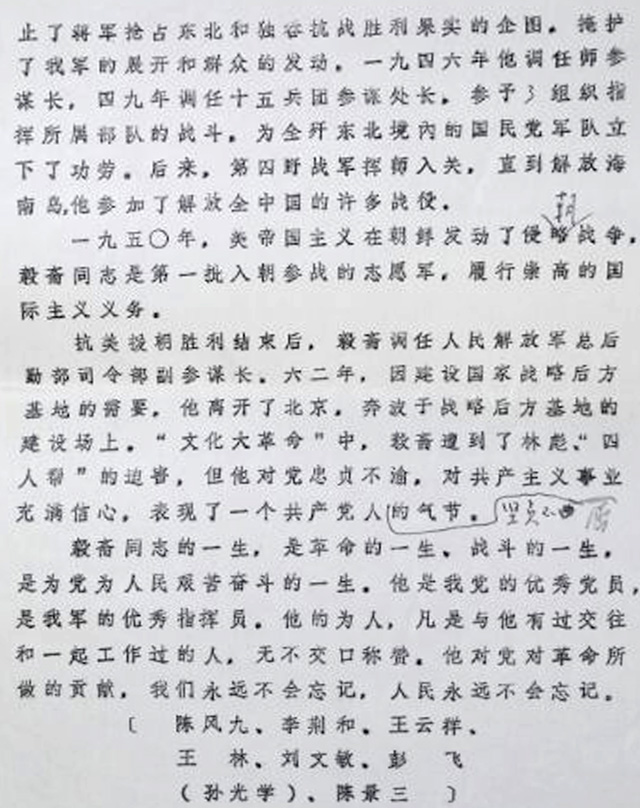 止了蒋军抢占东北和独吞抗战胜利果实的企图。掩护
了我军的展开和群众的发动。一九四六年他调任师参
谋长，四九年调任十五兵团参谋处长。参予了组织指
挥所属部队的战斗。为全歼东北境内的国民党军队立
下了功劳。后来，第四野战军挥师入关，直到解放海
南岛,他参加了解放全中国的许多战役。
朝
一九五〇年，美帝国主义在朝鲜发动了侵略战争，
毅斋同志是第一批入朝参战的志愿军，履行崇高的国
际主义义务。
抗美援朝胜利结束后，毅斋调任人民解放军总后
勤部司令部副参谋长。六二年，因建设国家战略后方
基地的需要，他离开了北京，奔波于战略后方基地的
建设场上。“文化大革命”中，毅斋遭到了林彪、“四
人帮”的迫害，但他对党忠贞不渝，对共产主义事业
充满信心，表现了一个共产党人的气节。坚贞不曲 屈
毅斋同志的一生，是革命的一生、战斗的一生，
是为党为人民艰苦奋斗的一生。他是我党的优秀党员，
是我军的优秀指挥员。他的为人，凡是与他有过交往
和一起工作过的人，无不交口称赞。他对党对革命所
做的贡献，我们永远不会忘记，人民永远不会忘记。
〔 陈风九、李荆和、王云祥、
王 林、刘文敏、彭 飞
(孙光学)、陈景三 〕